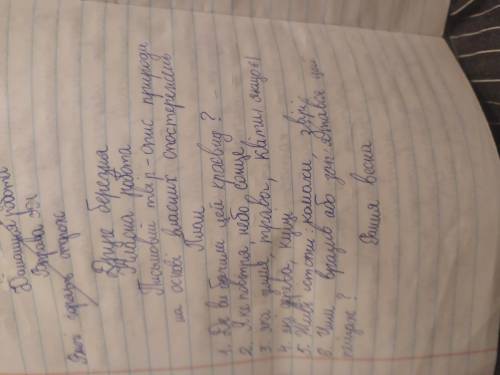 Домашня робота
Вправа
Друге березня
Класна робота
Письмовий твір-опис природи
на основі власних спостережень
План
1. Де ви бачили цей краєвид?
2. Яке повітря, небо, сонце
3. яка земля, трава, квіти (якщо є)
4. які дерева, кущі
5. Живі істоти: комахи, звірі
6. Чим вразив або запам'ятався цей
пейзаж?
Рання весна